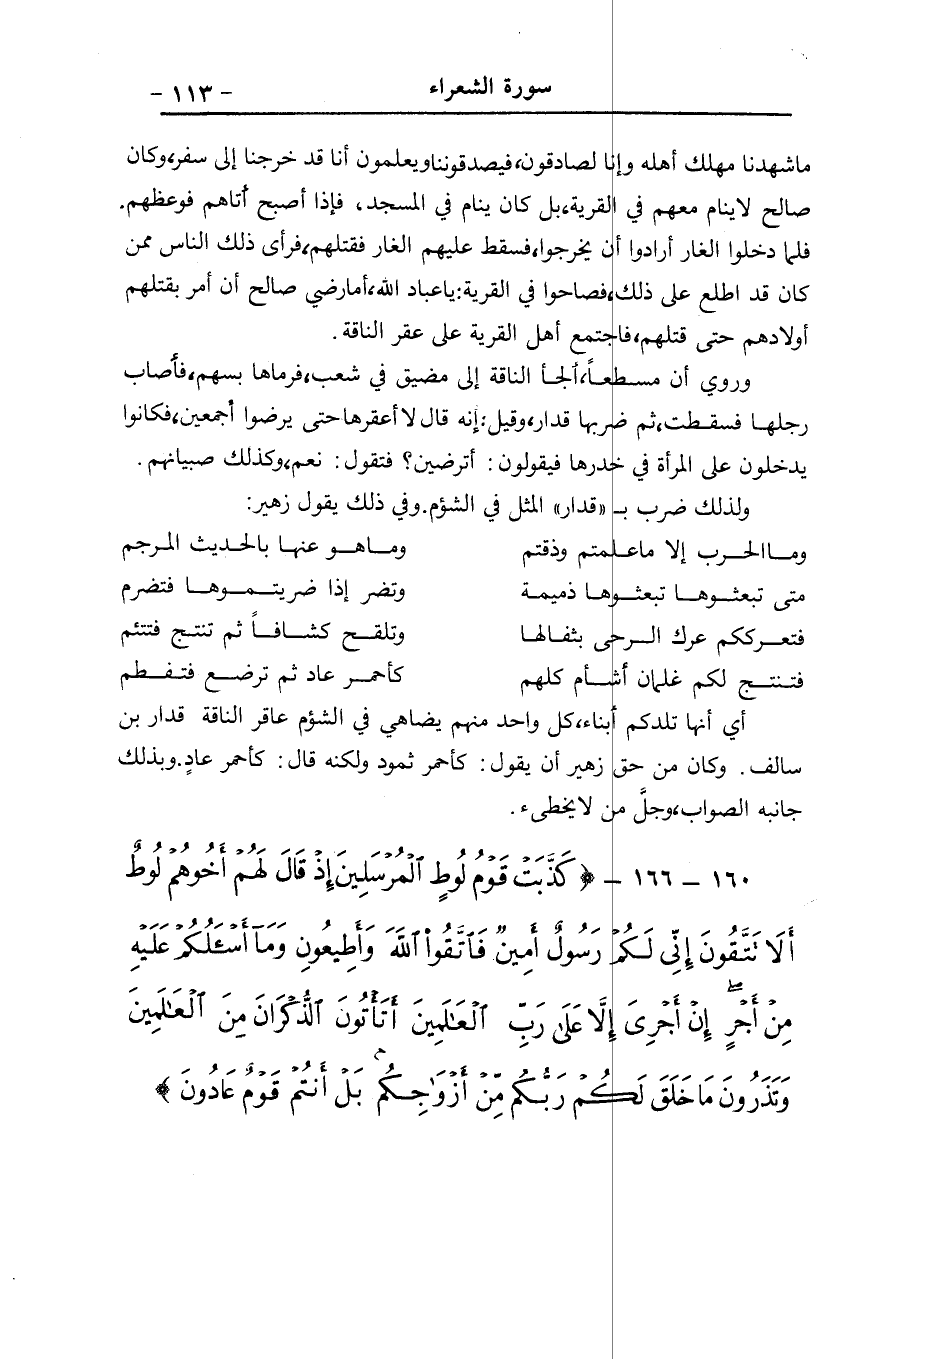 سورة الشعراء - ١١٣ -
ماشهدنا مهلك أهله وإنا لصادقون،فيصدقونناويعلمون أنا قد خرجنا إلى سفر،وكان
صالح لاينام معهم في القرية،بل كان ينام في المسجد، فإذا أصبح أتاهم فوعظهم.
فلما دخلوا الغار أرادوا أن يخرجوا،فسقط عليهم الغار فقتلهم،فرأى ذلك الناس ممن
كان قد اطلع على ذلك،فصاحوا في القرية:ياعباد الله،أمارضي صالح أن أمر بقتلهم
أولادهم حتى قتلهم،فاجتمع أهل القرية على عقر الناقة.
وروي أن مسطعاً،ألجأ الناقة إلى مضيق في شعب،فرماها بسهم،فأصاب
رجلها فسقطت،ثم ضربها قدار،وقيل:إنه قال لاأعقرهاحتى يرضوا أجمعين،فكانوا
يدخلون على المرأة في خدرها فيقولون: أترضين؟ فتقول: نعم،وكذلك صبيانهم.
ولذلك ضرب بـ «قدار» المثل في الشؤم.وفي ذلك يقول زهير:
وماالحرب إلا ماعلمتم وذقتم وماهو عنها بالحديث المرجم
متى تبعثوها تبعثوها ذميمة وتضر إذا ضريتموها فتضرم
فتعرككم عرك الرحى بثفالها وتلقح كشافاً ثم تنتج فتتئم
فتنتج لكم غلمان أشأم كلهم كأحمر عاد ثم ترضع فتفطم
أي أنها تلدكم أبناء،كل واحد منهم يضاهي في الشؤم عاقر الناقة قدار بن
سالف. وكان من حق زهير أن يقول: كأحمر ثمود ولكنه قال: كأحمر عادٍ.وبذلك
جانبه الصواب،وجلَّ من لايخطىء.
١٦٠ - ١٦٦ - ﴿ كَذَّبَتْ قَوْمُ لُوطٍ ٱلْمُرْسَلِينَ إِذْ قَالَ لَهُمْ أَخُوهُمْ لُوطٌ
أَلَا تَتَّقُونَ إِنِّي لَكُمْ رَسُولٌ أَمِينٌ فَٱتَّقُوا۟ ٱللَّهَ وَأَطِيعُونِ وَمَآ أَسْـَٔلُكُمْ عَلَيْهِ
مِنْ أَجْرٍ إِنْ أَجْرِىَ إِلَّا عَلَى رَبِّ ٱلْعَـٰلَمِينَ أَتَأْتُونَ ٱلذُّكْرَانَ مِنَ ٱلْعَـٰلَمِينَ
وَتَذَرُونَ مَا خَلَقَ لَكُمْ رَبُّكُم مِّنْ أَزْوَٰجِكُم بَلْ أَنتُمْ قَوْمٌ عَادُونَ ﴾